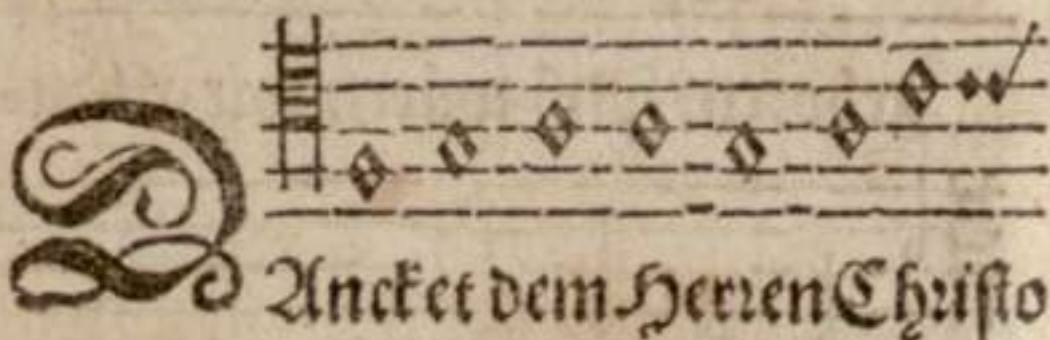 DAncket dem Herren Christo